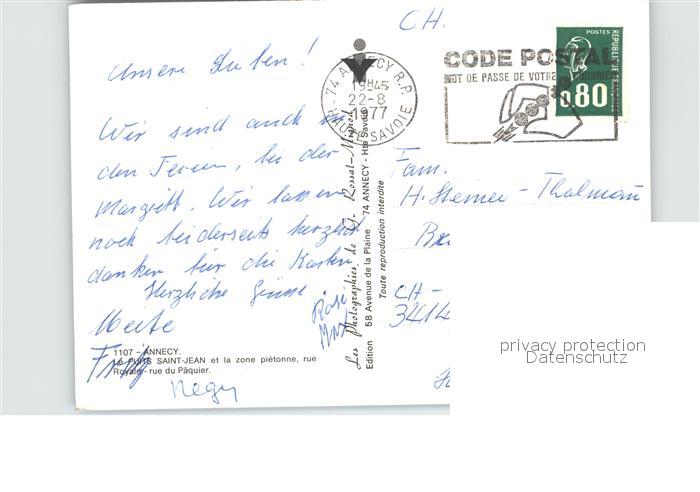 CH.
Unsere Lieben!
Wir sind auch in
den Ferien, bei der
Margritt. Wir lassen
noch beiderseits herzlich
danken für die Karten.
Herzliche Grüsse.
Meite
Fritz
Rösi
Max
Megy
1107 - ANNECY.
Le PUITS SAINT-JEAN et la zone piétonne, rue
Royale - rue du Pâquier.
Les Photographies de G. Rossat-Mignod
Edition 58 Avenue de la Plaine 74 ANNECY - Hte Savoie
Toute reproduction interdite
74 ANNECY R.P.
19H45
22-8
1977
HAUTE-SAVOIE
CODE POSTAL
MOT DE PASSE DE VOTRE COURRIER
POSTES
REPUBLIQUE FRANÇAISE
0,80
Fam.
H. Steiner-Thalmann
CH-
3414
privacy protection
Datenschutz